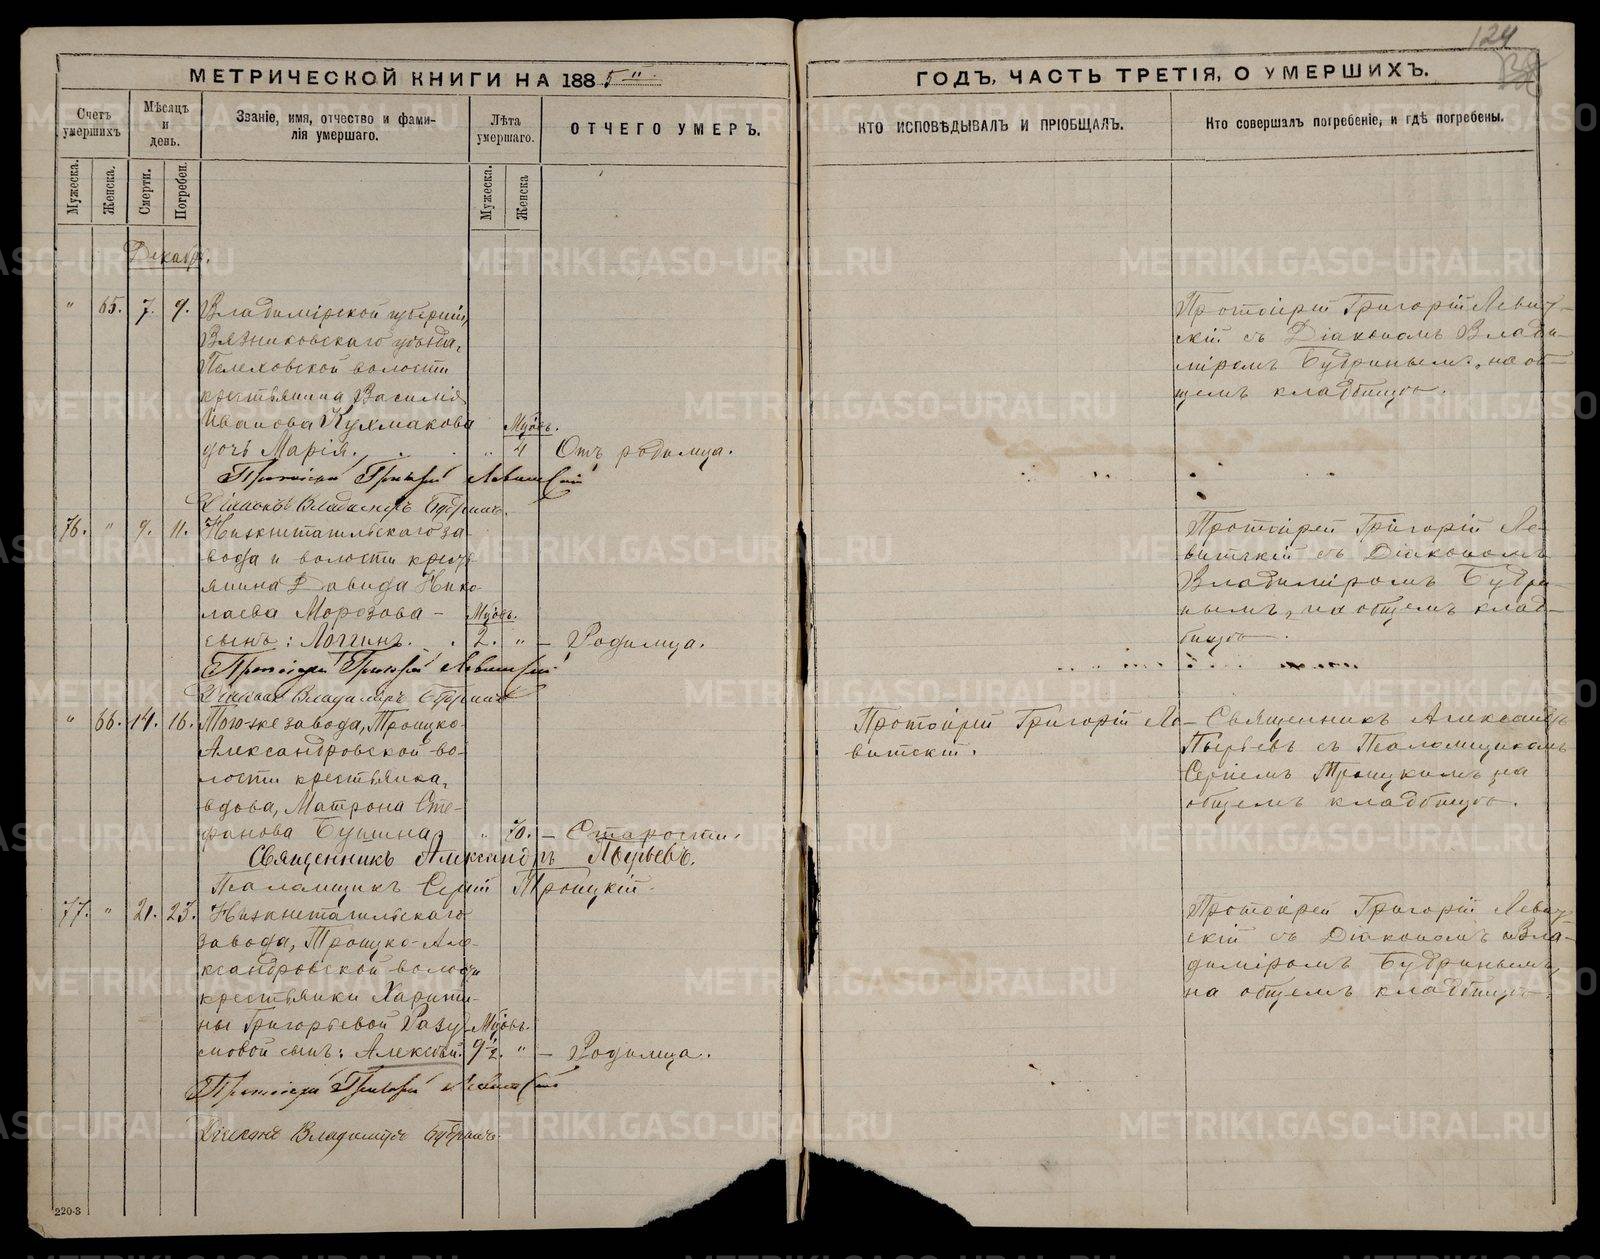 124
МЕТРИЧЕСКОЙ КНИГИ НА 1885
ГОДЪ, ЧАСТЬ ТРЕТІЯ, О УМЕРШИХЪ.
Счетъ умершихъ
Мѣсяцъ и день.
Званіе, имя, отчество и фами-
лія умершаго.
Лѣта умершаго.
ОТЧЕГО УМЕРЪ.
КТО ИСПОВѢДЫВАЛЪ И ПРІОБЩАЛЪ.
Кто совершалъ погребеніе, и гдѣ погребены.
Мужеска.
Женска.
Смерти.
Погребен.
Мужеска.
Женска
Декабрь.
" 65. 7. 9. Владимірской губерніи,
Вязниковскаго уѣзда,
Палеховской волости
крестьянина Василія
Иванова Кулмакова
дочь Марія. " Мѣсъ. 4 Отъ родимца.
Протоіерей Григорій Левитскій
Діаконъ Владиміръ Будринъ.
Протоіерей Григорій Левит-
скій съ Діакономъ Влади-
міромъ Будринымъ, на об-
щемъ кладбищѣ.
76. " 9. 11. Нижнетагильскаго за-
вода и волости крест-
янина Давида Нико-
лаева Морозова –
сынъ: Логгинъ. Мѣсъ. 2. " – Родимца.
Протоіерей Григорій Левитскій
Діаконъ Владиміръ Будринъ
Протоіерей Григорій Ле-
витскій съ Діакономъ
Владиміромъ Будри-
нымъ, на общемъ клад-
бищѣ.
" 66. 14. 16. Того-же завода, Троицко-
Александровской во-
лости крестьянка,
вдова, Матрона Сте-
фанова Бушина " 70. – Старости.
Священникъ Александръ Пырьевъ.
Псаломщикъ Сергій Троицкій.
Протоіерей Григорій Ле-
витскій.
Священникъ Александръ
Пырьевъ съ Псаломщикомъ
Сергіемъ Троицкимъ, на
общемъ кладбищѣ.
77. " 21. 23. Нижнетагильскаго
завода, Троицко-Але-
ксандровской волости
крестьянки Харити-
ны Григорьевой Разу-
мовой сынъ: Алексѣй. Мѣсъ. 9½. " – Родимца.
Протоіерей Григорій Левитскій
Діаконъ Владиміръ Будринъ.
Протоіерей Григорій Левит-
скій съ Діакономъ Вла-
диміромъ Будринымъ,
на общемъ кладбищѣ.
220-3
METRIKI.GASO-URAL.RU